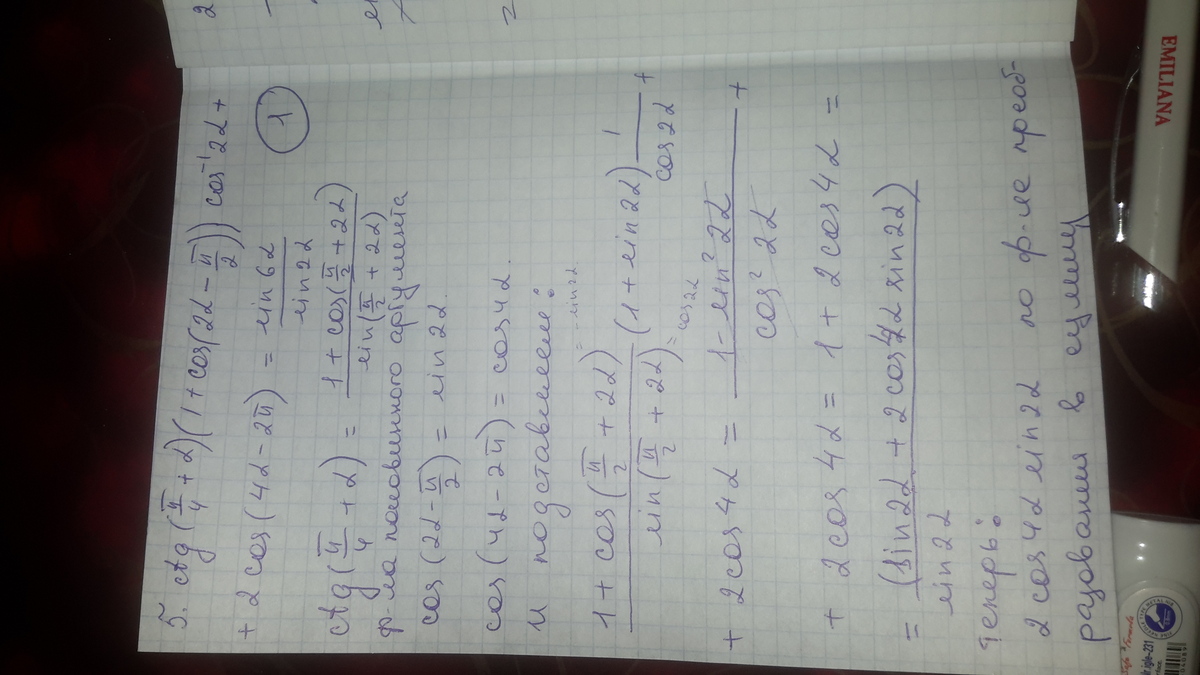 5. ctg(π/4 + α)(1 + cos(2α - π/2)) cos⁻¹ 2α +
+ 2 cos(4α - 2π) = sin 6α / sin 2α
1
ctg(π/4 + α) = (1 + cos(π/2 + 2α)) / sin(π/2 + 2α)
ф-ла половинного аргумента
cos(2α - π/2) = sin 2α.
cos(4α - 2π) = cos 4α.
и подставляем:
(1 + cos(π/2 + 2α)) / sin(π/2 + 2α) (1 + sin 2α) 1 / cos 2α +
= -sin 2α
= cos 2α
+ 2 cos 4α = (1 - sin² 2α) / cos² 2α +
+ 2 cos 4α = 1 + 2 cos 4α =
= (1 sin 2α + 2 cos 4α sin 2α) / sin 2α
теперь:
2 cos 4α sin 2α по ф-ле преоб-
разования в сумму
EMILIANA